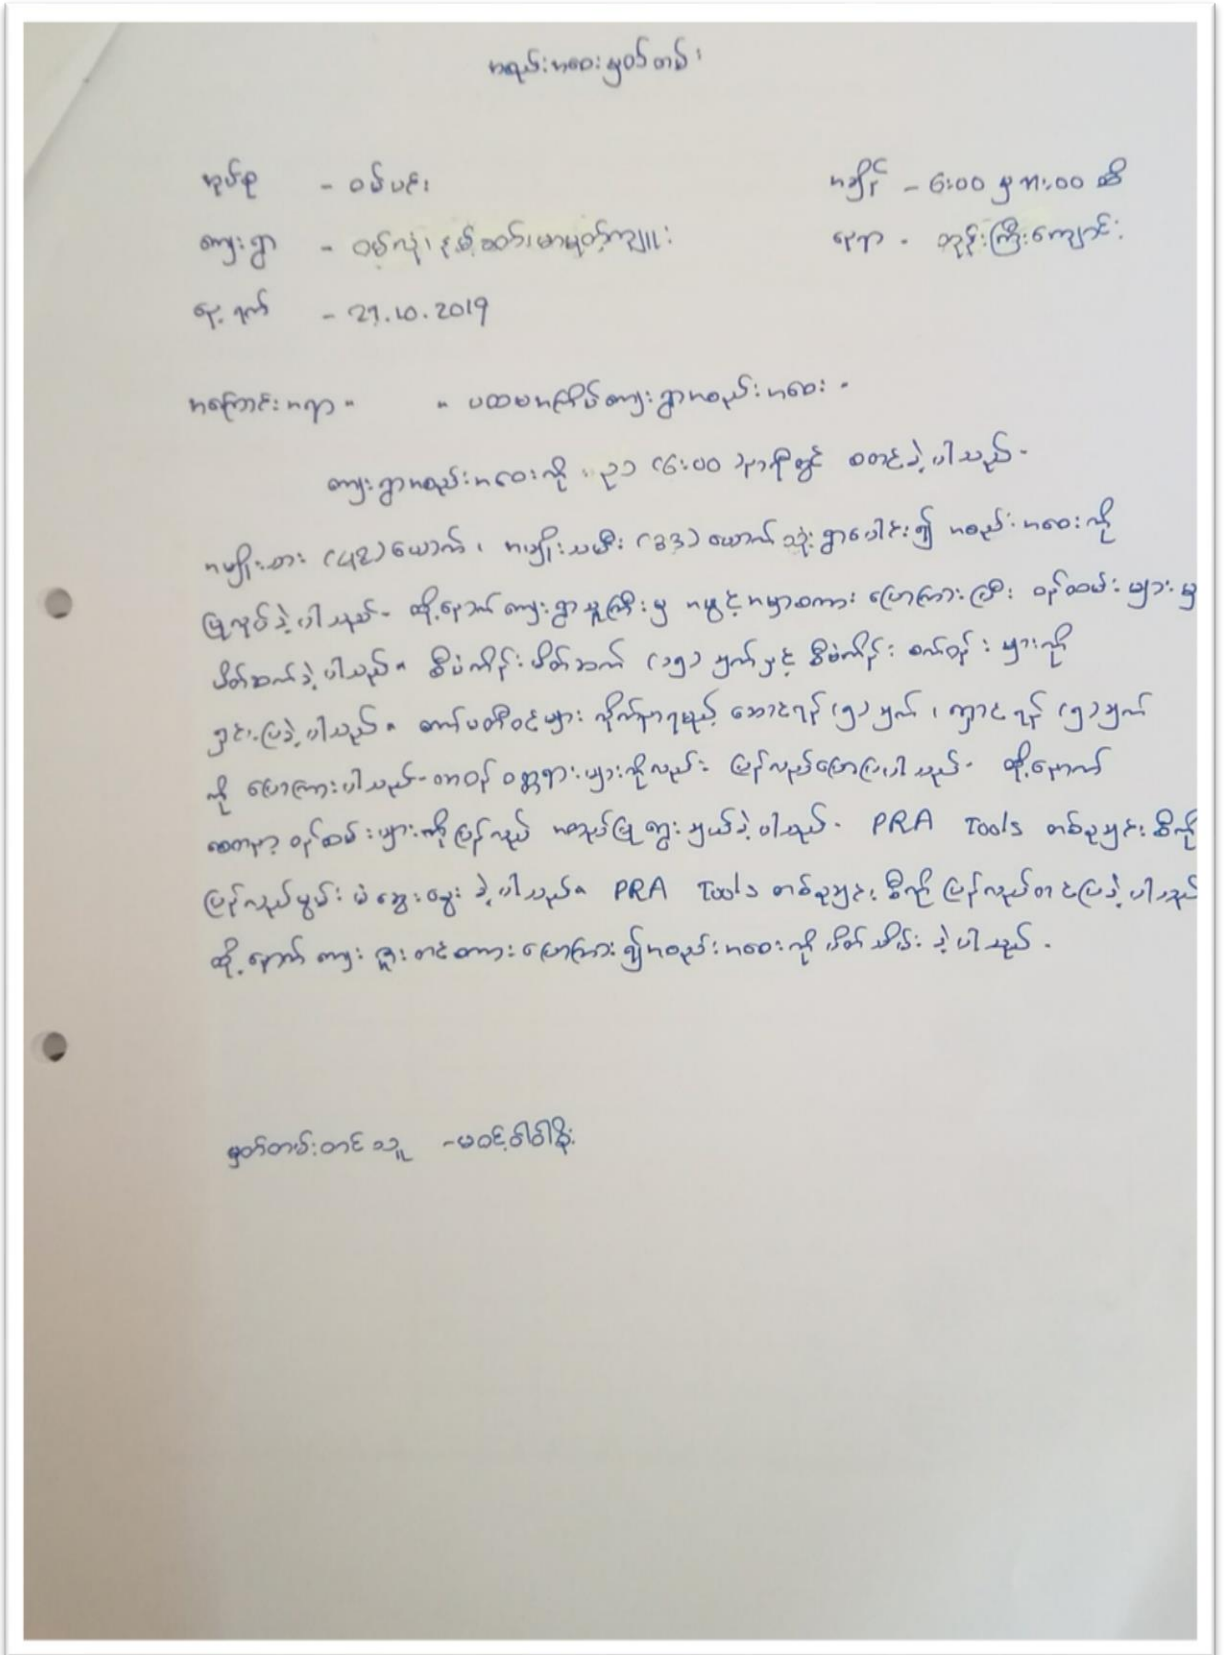 အစည်းအဝေးမှတ်တမ်း
အုပ်စု - ဝမ်ပင်း အချိန် - 6:00 မှ 7:00 ထိ
ကျေးရွာ - နေရာ - ဘုန်းကြီးကျောင်း
နေ့ရက် - 21.10.2019
အကြောင်းအရာ။ ။ ပထမအကြိမ်ကျေးရွာအစည်းအဝေး။
ကျေးရွာအစည်းအဝေးကို ည (6:00) နာရီတွင် စတင်ခဲ့ပါသည်။
အမျိုးသား (၅၃) ယောက်၊ အမျိုးသမီး (၆၃) ယောက် သုံးရွာပေါင်း၍ အစည်းအဝေးကို
ပြုလုပ်ခဲ့ပါသည်။ ထို့နောက် ကျေးရွာသူကြီးမှ အဖွင့်အမှာစကား ပြောကြားပြီး ဝန်ထမ်းများမှ
မိတ်ဆက်ခဲ့ပါသည်။ စီမံကိန်းမိတ်ဆက် (၁၅) ချက်နှင့် စီမံကိန်း စက်ဝန်းများကို
ရှင်းပြခဲ့ပါသည်။ ကော်မတီဝင်များ လိုက်နာရမည့် ဆောင်ရန် (၅) ချက်၊ ရှောင်ရန် (၅) ချက်
ကို ပြောကြားပါသည်။ တာဝန် ဝတ္တရားများကိုလည်း ပြန်လည်ပြောပြပါသည်။ ထို့နောက်
စေတနာ့ ဝန်ထမ်းများကို ပြန်လည် အတည်ပြုရွေးချယ်ခဲ့ပါသည်။ PRA Tools တစ်ခုချင်းစီကို
ပြန်လည်မွမ်းမံဆွေးနွေးခဲ့ပါသည်။ PRA Tools တစ်ခုချင်းစီကို ပြန်လည်တင်ပြခဲ့ပါသည်
ထို့နောက် ကျေးဇူးတင်စကားပြောကြား၍ အစည်းအဝေးကို ပိတ်သိမ်းခဲ့ပါသည်။
မှတ်တမ်းတင်သူ - မဝင့်ဝါဝါခိုး